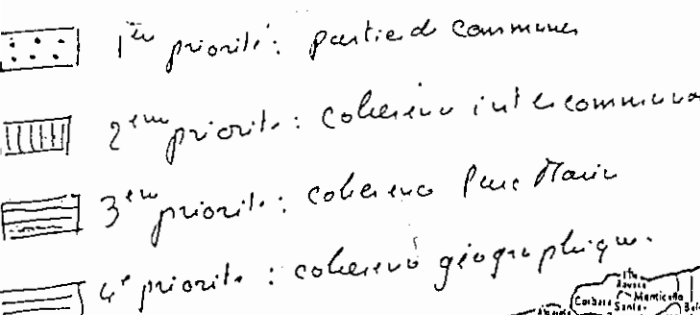 1ère priorité : partie de communes
2ème priorité : cohérence intercommuna
3ème priorité : cohérence Parc Marin
4e priorité : cohérence géographique.
Corbara
Santa-
Monticello